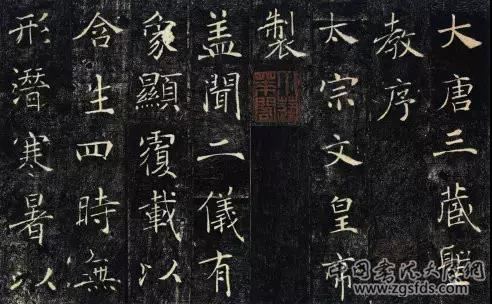 大唐三藏聖
教序
太宗文皇帝
製
盖聞二儀有
象顯覆載以
含生四時無
形潛寒暑以
中国书法大师网
www.zgsfds.com